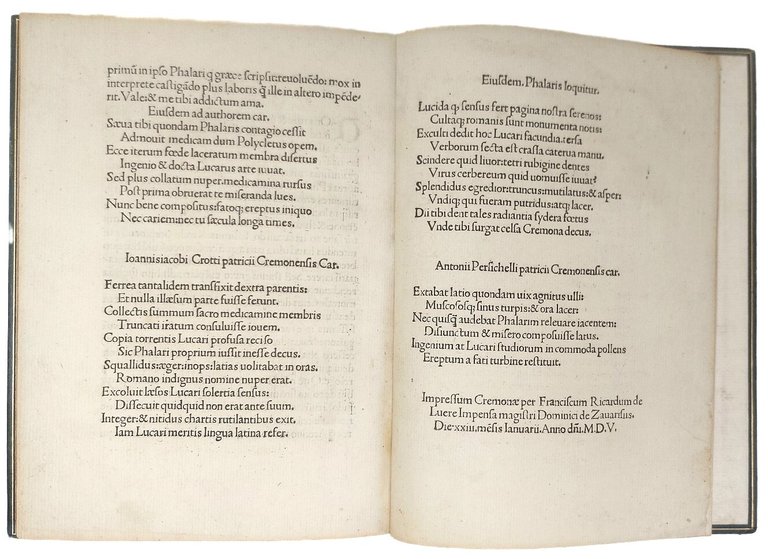 primũ in ipso Phalari q̃ græce scripsit: reuoluẽdo: mox in
interprete castigãdo plus laboris q̃ ille in altero impẽde
rit. Vale: & me tibi addictum ama.
Eiusdem ad authorem car.
Sæua tibi quondam Phalaris contagio cessit
Ad:mouit medicam dum Polycletus opem.
Ecce iterum fœde laceratum membra disertus
Ingenio & docta Lucarus arte iuuat.
Sed plus collatum nuper.medicamina rursus
Post prima obruerat te miseranda lues.
Nunc bene compositus: satoq; ereptus iniquo
Nec cariem: nec tu sæcula longa times.
Ioannisiacobi Crotti patricii Cremonensis Car.
Ferrea tantalidem transfixit dextra parentis:
Et nulla illæsum parte fuisse ferunt.
Collectis summum sacro medicamine membris
Truncati iratum consuluisse iouem.
Copia torrentis Lucari profusa reciso
Sic Phalari proprium iussit inesse decus.
Squallidus: æger: inops: latias uolitabat in oras.
Romano indignus nomine nuper erat.
Excoluit læsos Lucari solertia sensus:
Dissecuit quidquid non erat ante suum.
Integer: & nitidus chartis rutilantibus exit.
Iam Lucari meritis lingua latina refer.
Eiusdem. Phalaris loquitur.
Lucida q; sensus fert pagina nostra serenos:
Cultaq; romanis sunt monumenta notis:
Exculti dedit hoc Lucari facundia: tersa
Verborum secta est crassa caterua manu.
Scindere quid liuor: tetri rubigine dentes
Virus cerbereum quid uomuisse iuuat?
Splendidus egredior: truncus: mutilatus: & asper:
Vndiq; qui fueram putridus: atq; lacer.
Dii tibi dent tales radiantia sydera fœtus
Vnde tibi surgat celsa Cremona decus.
Antonii Persichelli patricii Cremonensis car.
Extabat latio quondam uix agnitus ulli:
Muscososq; sinus turpis: & ora lacer:
Nec quisq̃ audebat Phalarim releuare iacentem:
Disiunctum & misero composuisse latus.
Ingenium at Lucari studiorum in commoda pollens
Ereptum a fati turbine restituit.
Impressum Cremonæ per Franciscum Ricardum de
Luere Impensa magistri Dominici de Zauarisiis
Die.xxiii. mẽsis Ianuarii. Anno dñi. M.D.V.